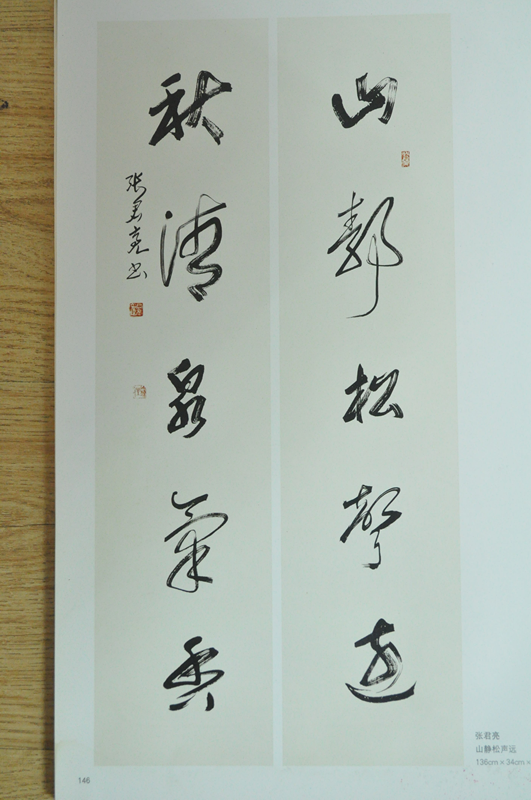 山靜松聲遠
秋清泉氣香
张君亮书
张君亮
山静松声远
136cm×34cm×
146